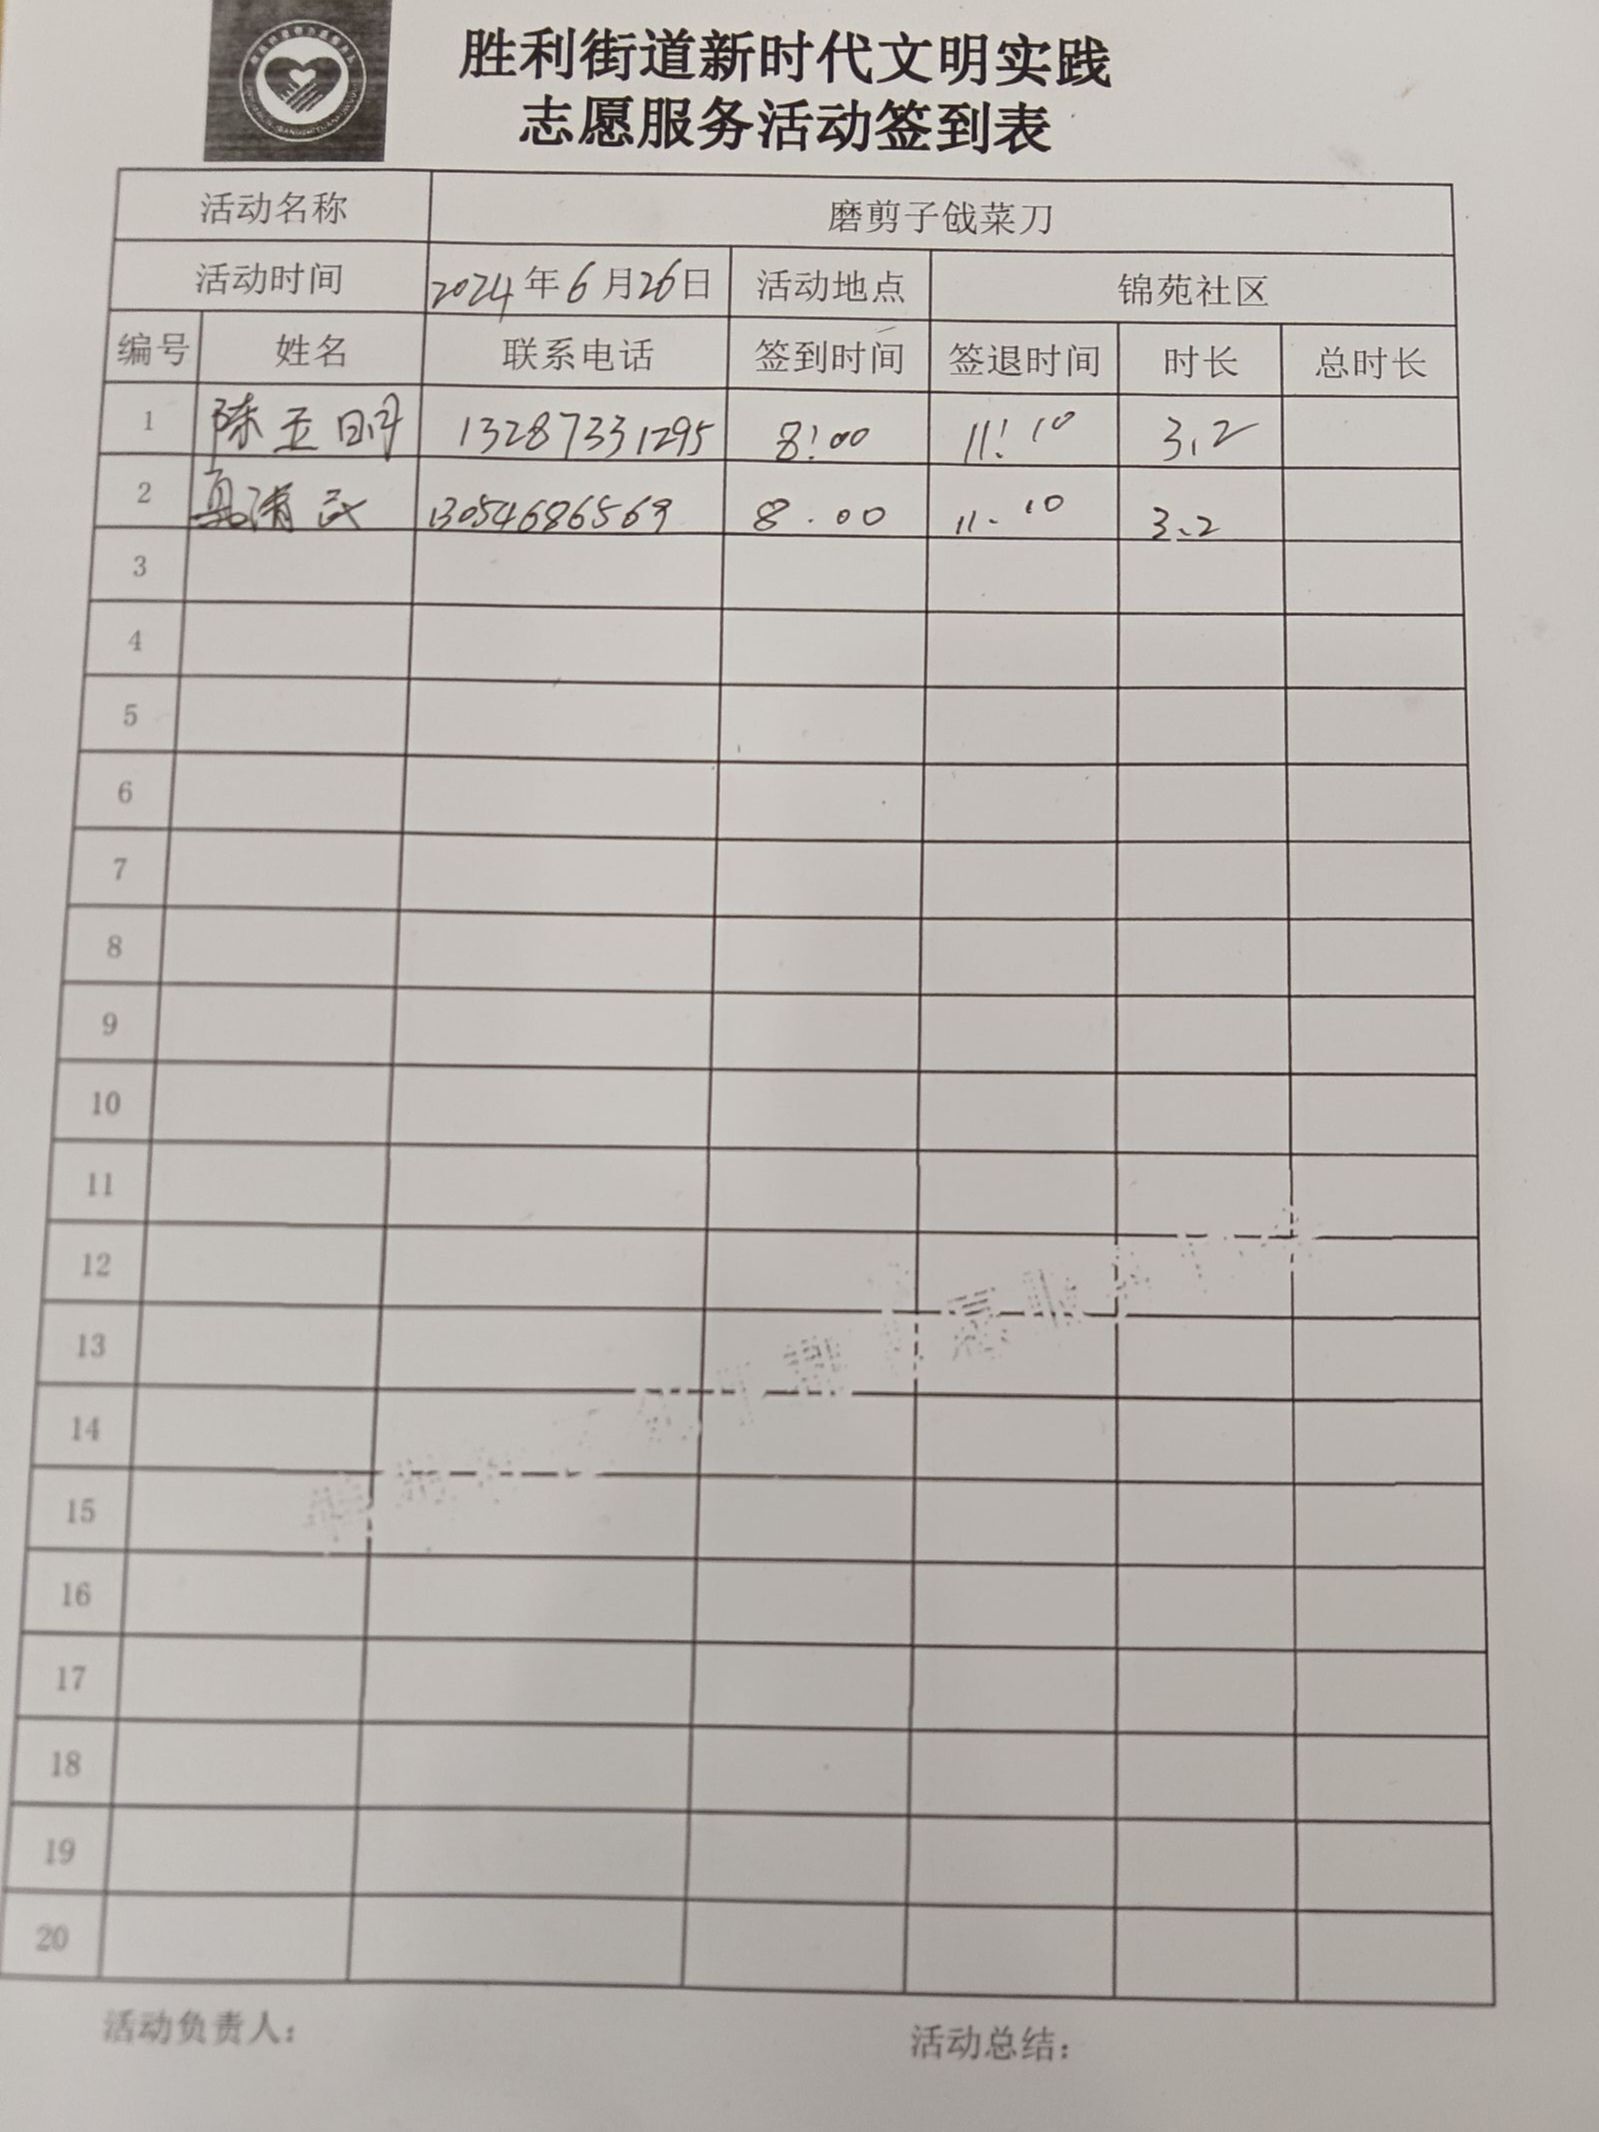 胜利街道新时代文明实践
志愿服务活动签到表
活动名称 磨剪子戗菜刀
活动时间 2024年6月26日 活动地点 锦苑社区
编号 姓名 联系电话 签到时间 签退时间 时长 总时长
1 陈玉明 13287331295 8:00 11:10 3.2
2 清 13054686569 8.00 11.10 3.2
3
4
5
6
7
8
9
10
11
12
13
14
15
16
17
18
19
20
活动负责人： 活动总结：